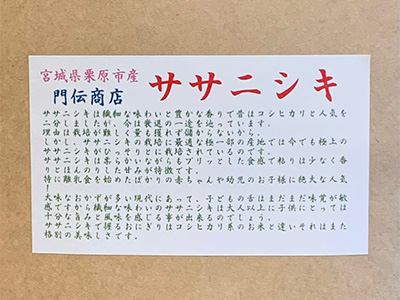 宮城県栗原市産
門伝商店
ササニシキ
ササニシキは繊細な味わいと豊かな香りで昔はコシヒカリと人気を
二分しましたが、今は衰退の一途を辿っています。
理由は栽培が難しく量も獲れず儲からないから。
しかし、ササニシキの栽培に最適な極一部の産地では今でも極上の
ササニシキがひっそりと栽培されているのです。
ササニシキは柔らかいながらもプリッとした食感で粘りは少なく香
りとほんのりした甘みが特徴です。
特に離乳食を始めたばかりの赤ちゃんや幼児のお子様に絶大な人気
！
大味なおかずが多い現代にあって、子どもの舌はまだまだ味覚が敏
感ですから繊細な味わいのササニシキは大人以上に子供にとっては
十分な旨みと風味を感じる事が出来るのでしょう。
ササニシキで握るおにぎりはコシヒカリ系のお米と違いそれはまた
格別の美味しさです。